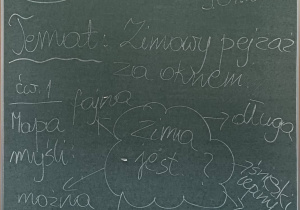 Temat: Zimowy pejzaż
za oknem.
ćw. 1
fajna
Mapa
myśli
Zima
jest
?
długa
można